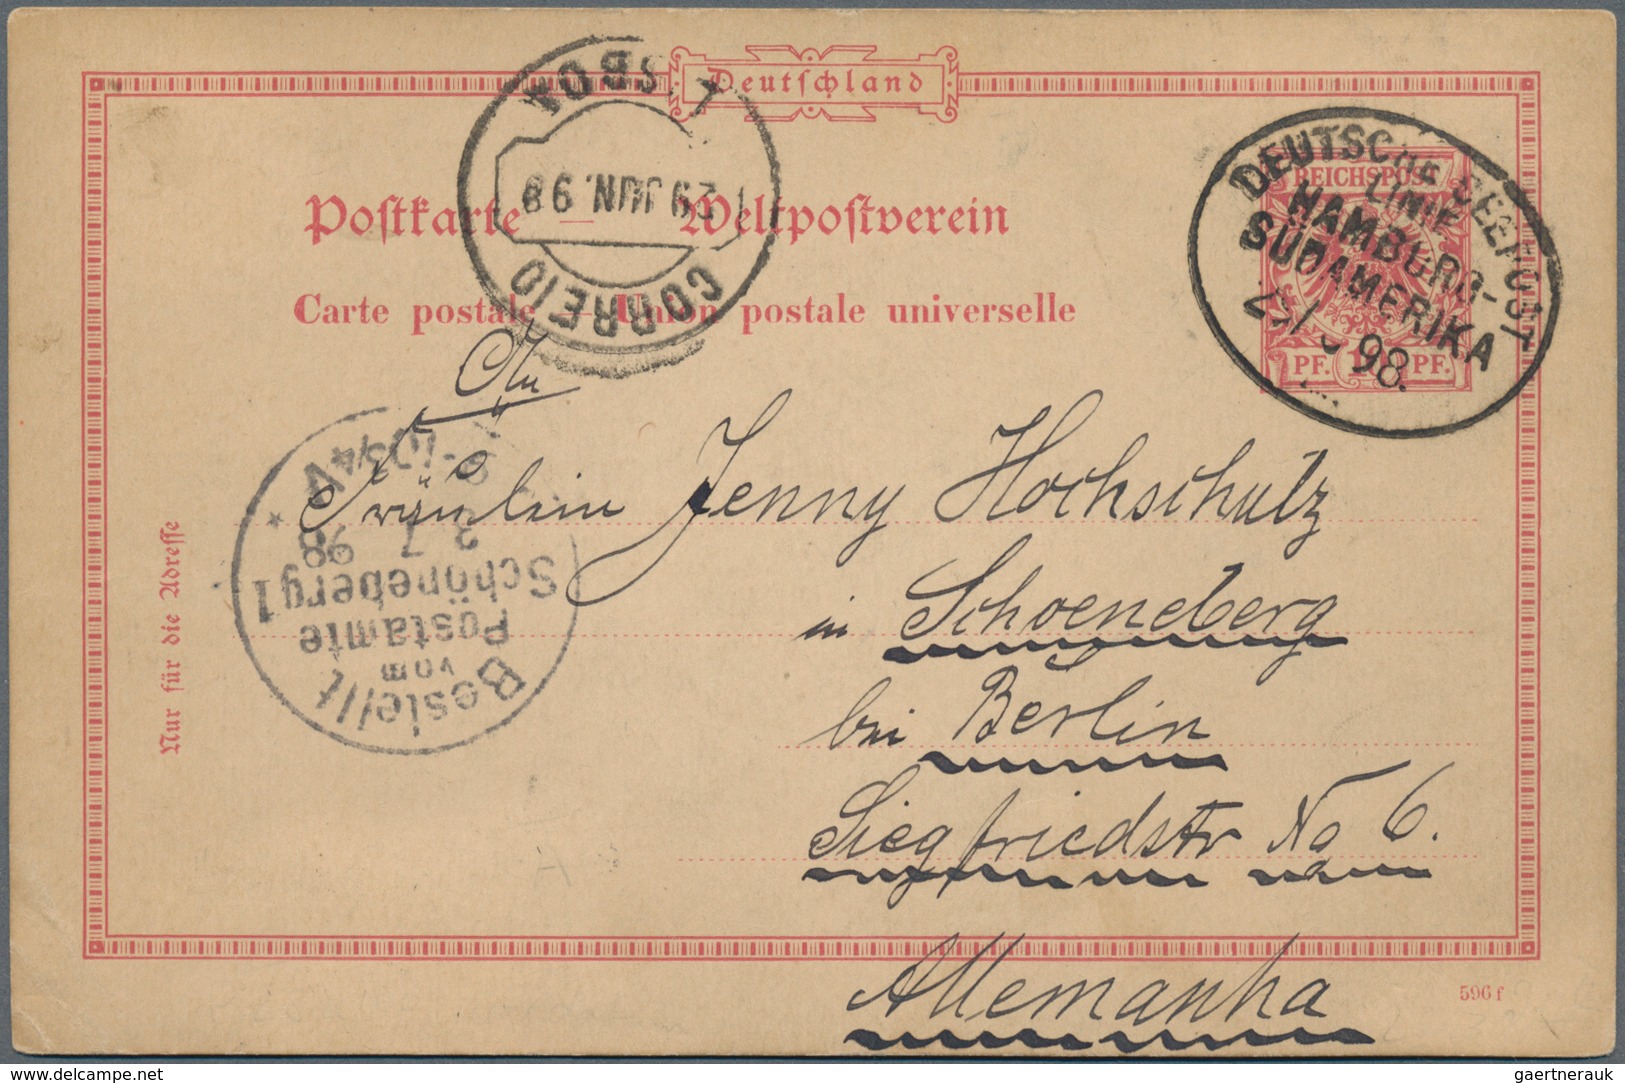 Deutschland
DEUTSCHE SEEPOST
LINIE
HAMBURG-
SÜDAMERIKA
98.
REICHSPOST
PF. 10 PF.
CORREIO
29 JUN. 98
LISBOA
Postkarte — Weltpostverein
Carte postale — Union postale universelle
An
Fräulein Jenny Hochschulz
in Schoeneberg
bei Berlin
Siegfriedstr No 6.
Allemanha
Bestellt
vom
Postamte
Schöneberg 1
2 7 98
10 3/4 V
Nur für die Adresse
596 f
gaertnerauk